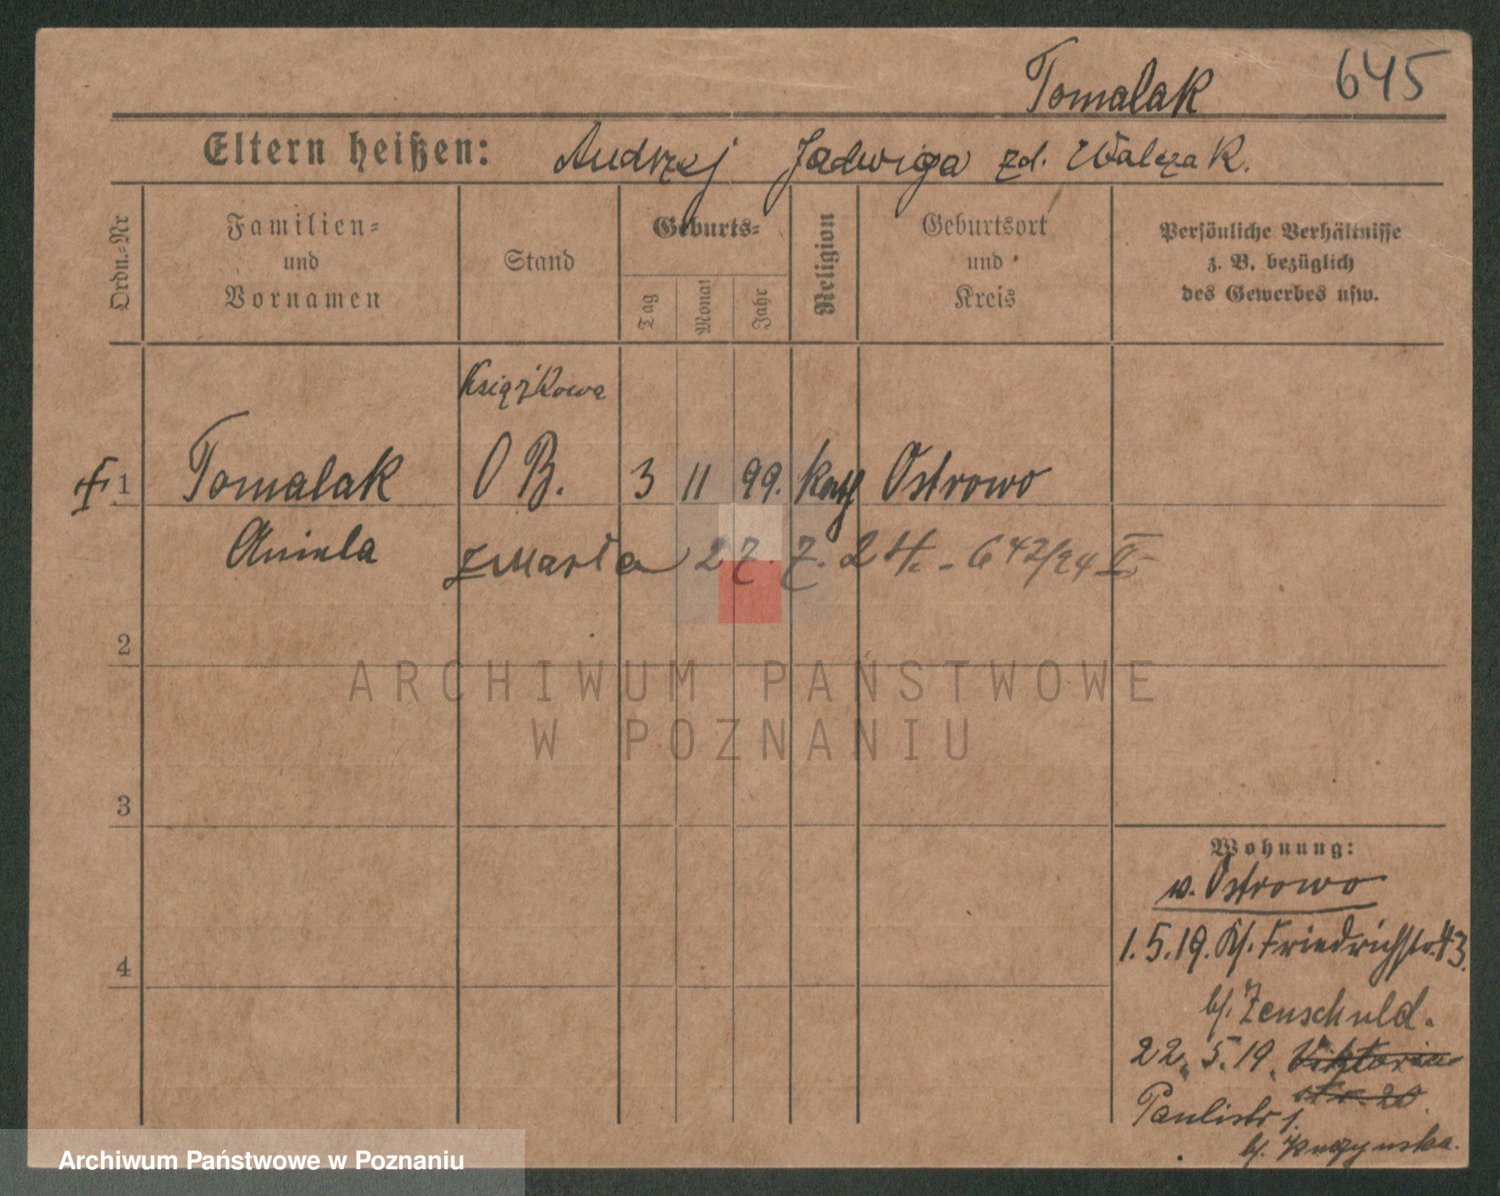 Tomalak 645
Eltern heißen: Andrzej Jadwiga zd. Walczak.
Ordn.-Nr
Familien-
und
Vornamen
Stand
Geburts-
Tag
Monat
Jahr
Religion
Geburtsort
und
Kreis
Persönliche Verhältnisse
z. B. bezüglich
des Gewerbes usw.
Książkowa
1 Tomalak O B. 3 11 99. kath Ostrowo
Aniela zmarła 27. 7. 24. - 647/24 II
2
3
4
Wohnung:
v. Ostrowo
1. 5. 19. Kl. Friedrichstr. 43.
bf. Zenschuld.
22. 5. 19. Viktoria
str. 20.
Paulistr 1.
bf.
ARCHIWUM PAŃSTWOWE
W POZNANIU
Archiwum Państwowe w Poznaniu